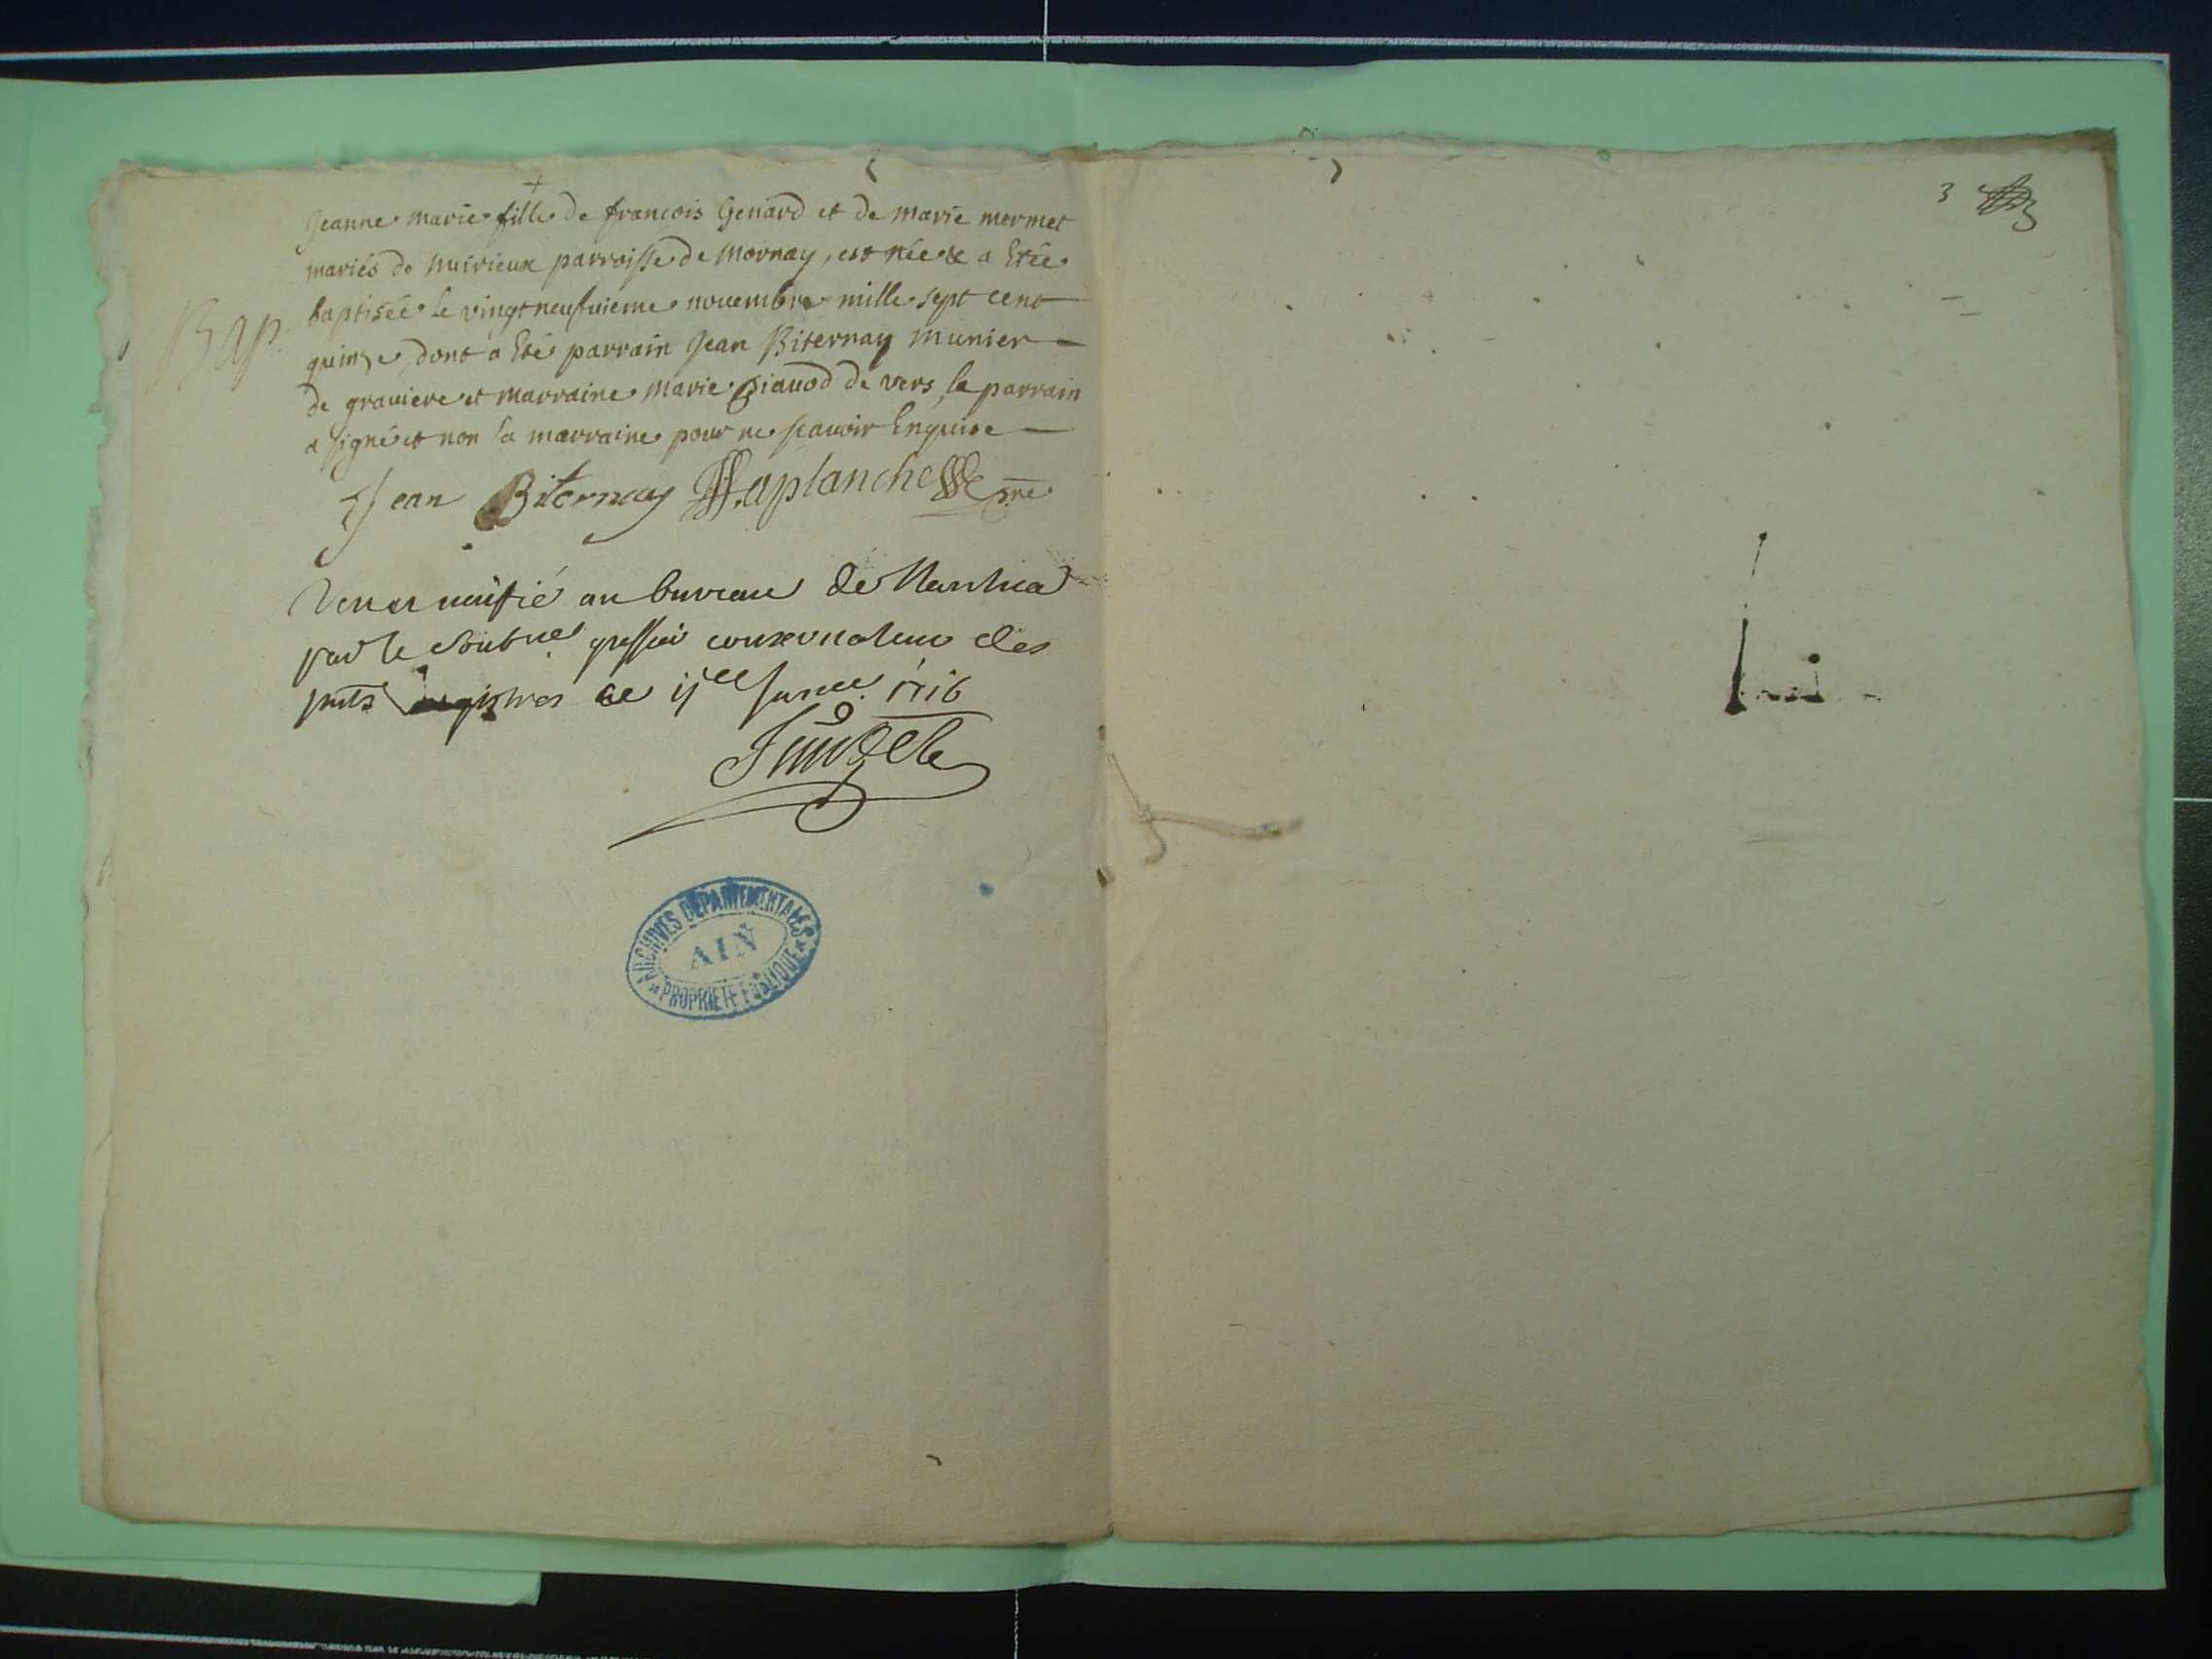 Jeanne marie fille de francois Genard et de marie mermet
mariés de nuirieux parroisse de mornay, est née & a Etée
Bap.
baptisée le vingt neufuieme nouembre mille sept cent
quinze, dont a Eté parrain Jean Biternay munier
de grauiere et marraine marie piauod de vers, le parrain
a signé et non la marraine pour ne scauoir Enquise
Jean Biternay Laplanche
veu et verifié au bureau de Nantua
par le greffier conservateur des
registres ce 1716
3
ARCHIVES DEPARTEMENTALES
AIN
PROPRIETE PUBLIQUE